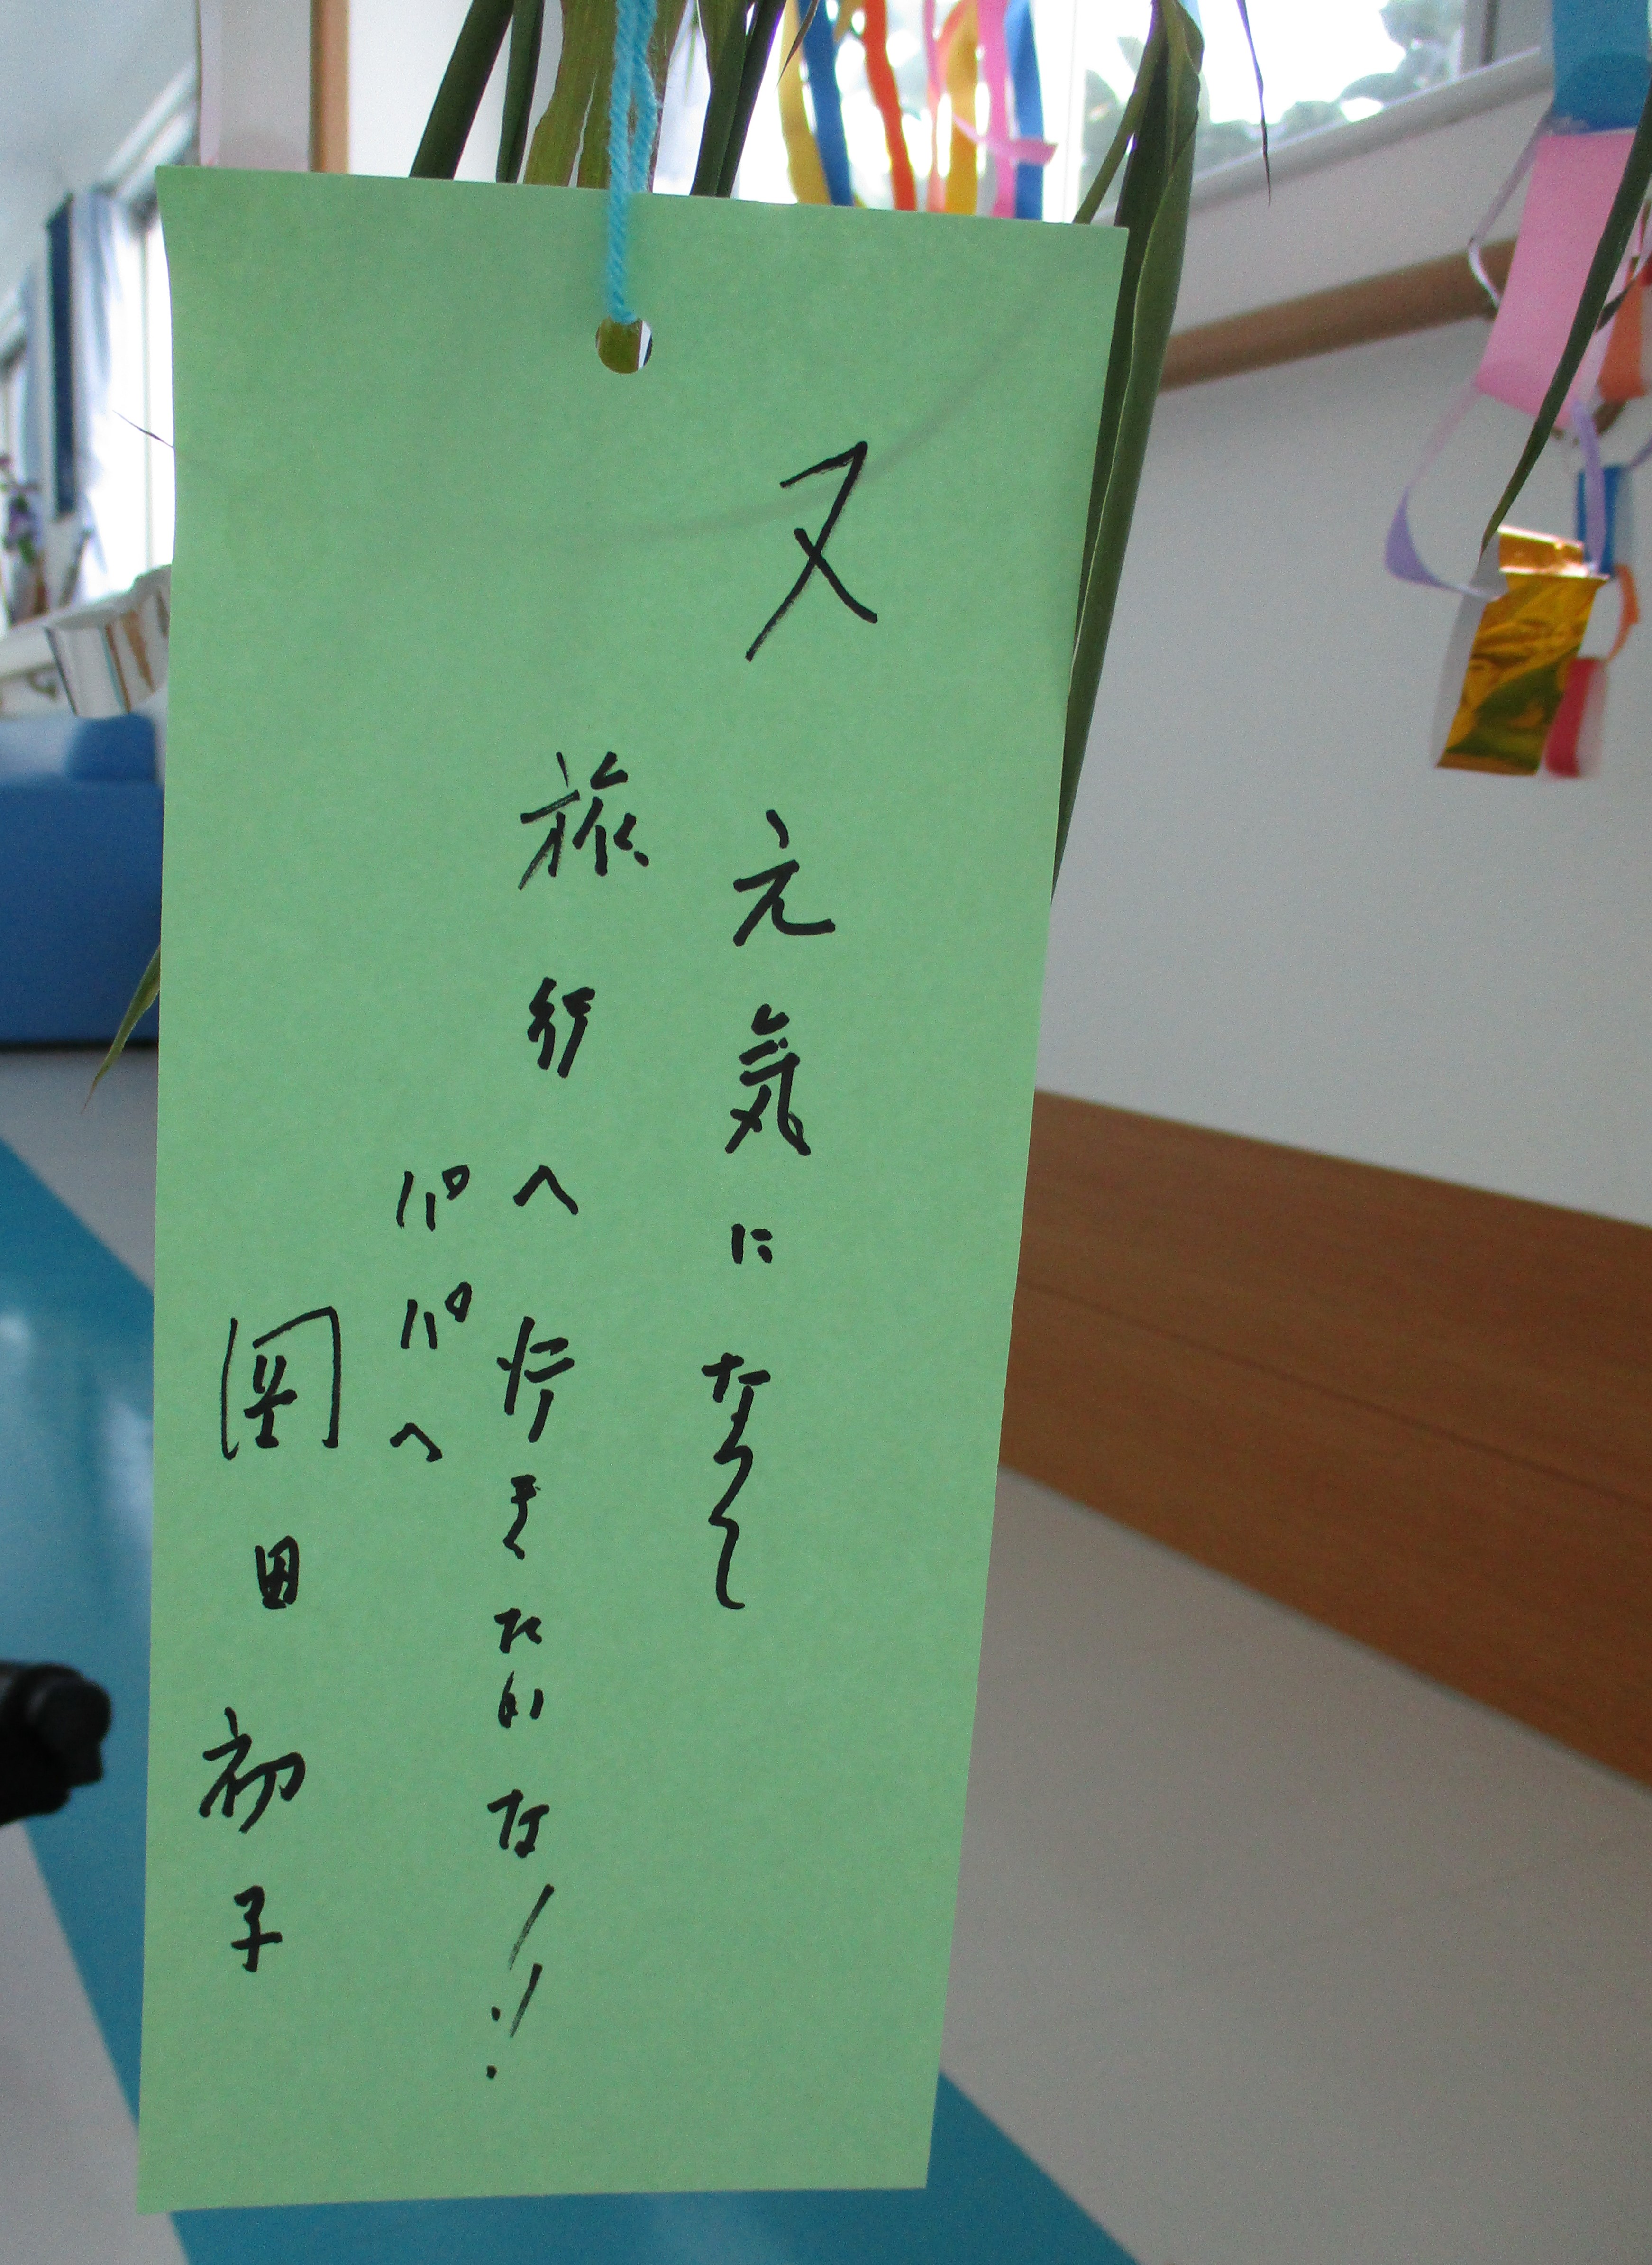 又 元気になって
旅行へ行きたいな!!
パパへ
岡田初子